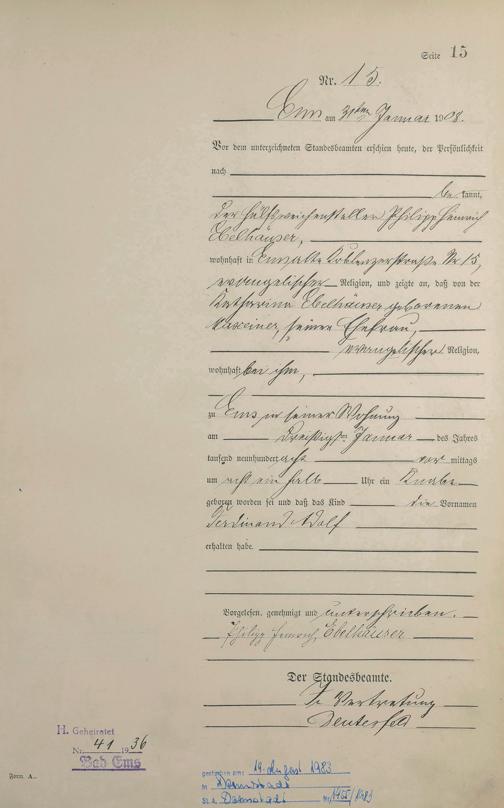 Seite 15
Nr. 15.
Ems am 31ten Januar 1908.
Vor dem unterzeichneten Standesbeamten erschien heute, der Persönlichkeit
nach
be kannt,
der Hülfsweichensteller Philipp Heinrich
Ebelhäuser,
wohnhaft in Ems, alte Koblenzerstraße Nr 15,
evangelischer Religion, und zeigte an, daß von der
Katharina Ebelhäuser geborenen
seiner Ehefrau,
evangelischer Religion,
wohnhaft bei ihm,
zu Ems in seiner Wohnung
am dreißigten Januar des Jahres
tausend neunhundert acht vor mittags
um acht ein halb Uhr ein Knabe
geboren worden sei und daß das Kind die Vornamen
Ferdinand Adolf
erhalten habe.
Vorgelesen, genehmigt und unterschrieben.
Philipp Heinrich Ebelhäuser
Der Standesbeamte.
In Vertretung
H. Geheiratet
Nr. 41 1936
Bad Ems
Form. A..
gestorben am: 19. August 1983
in Darmstadt
St.A. Darmstadt Nr. 1983